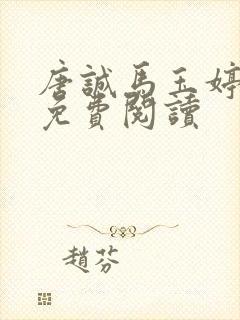 唐誠馬玉婷
免費閱讀
趙芬